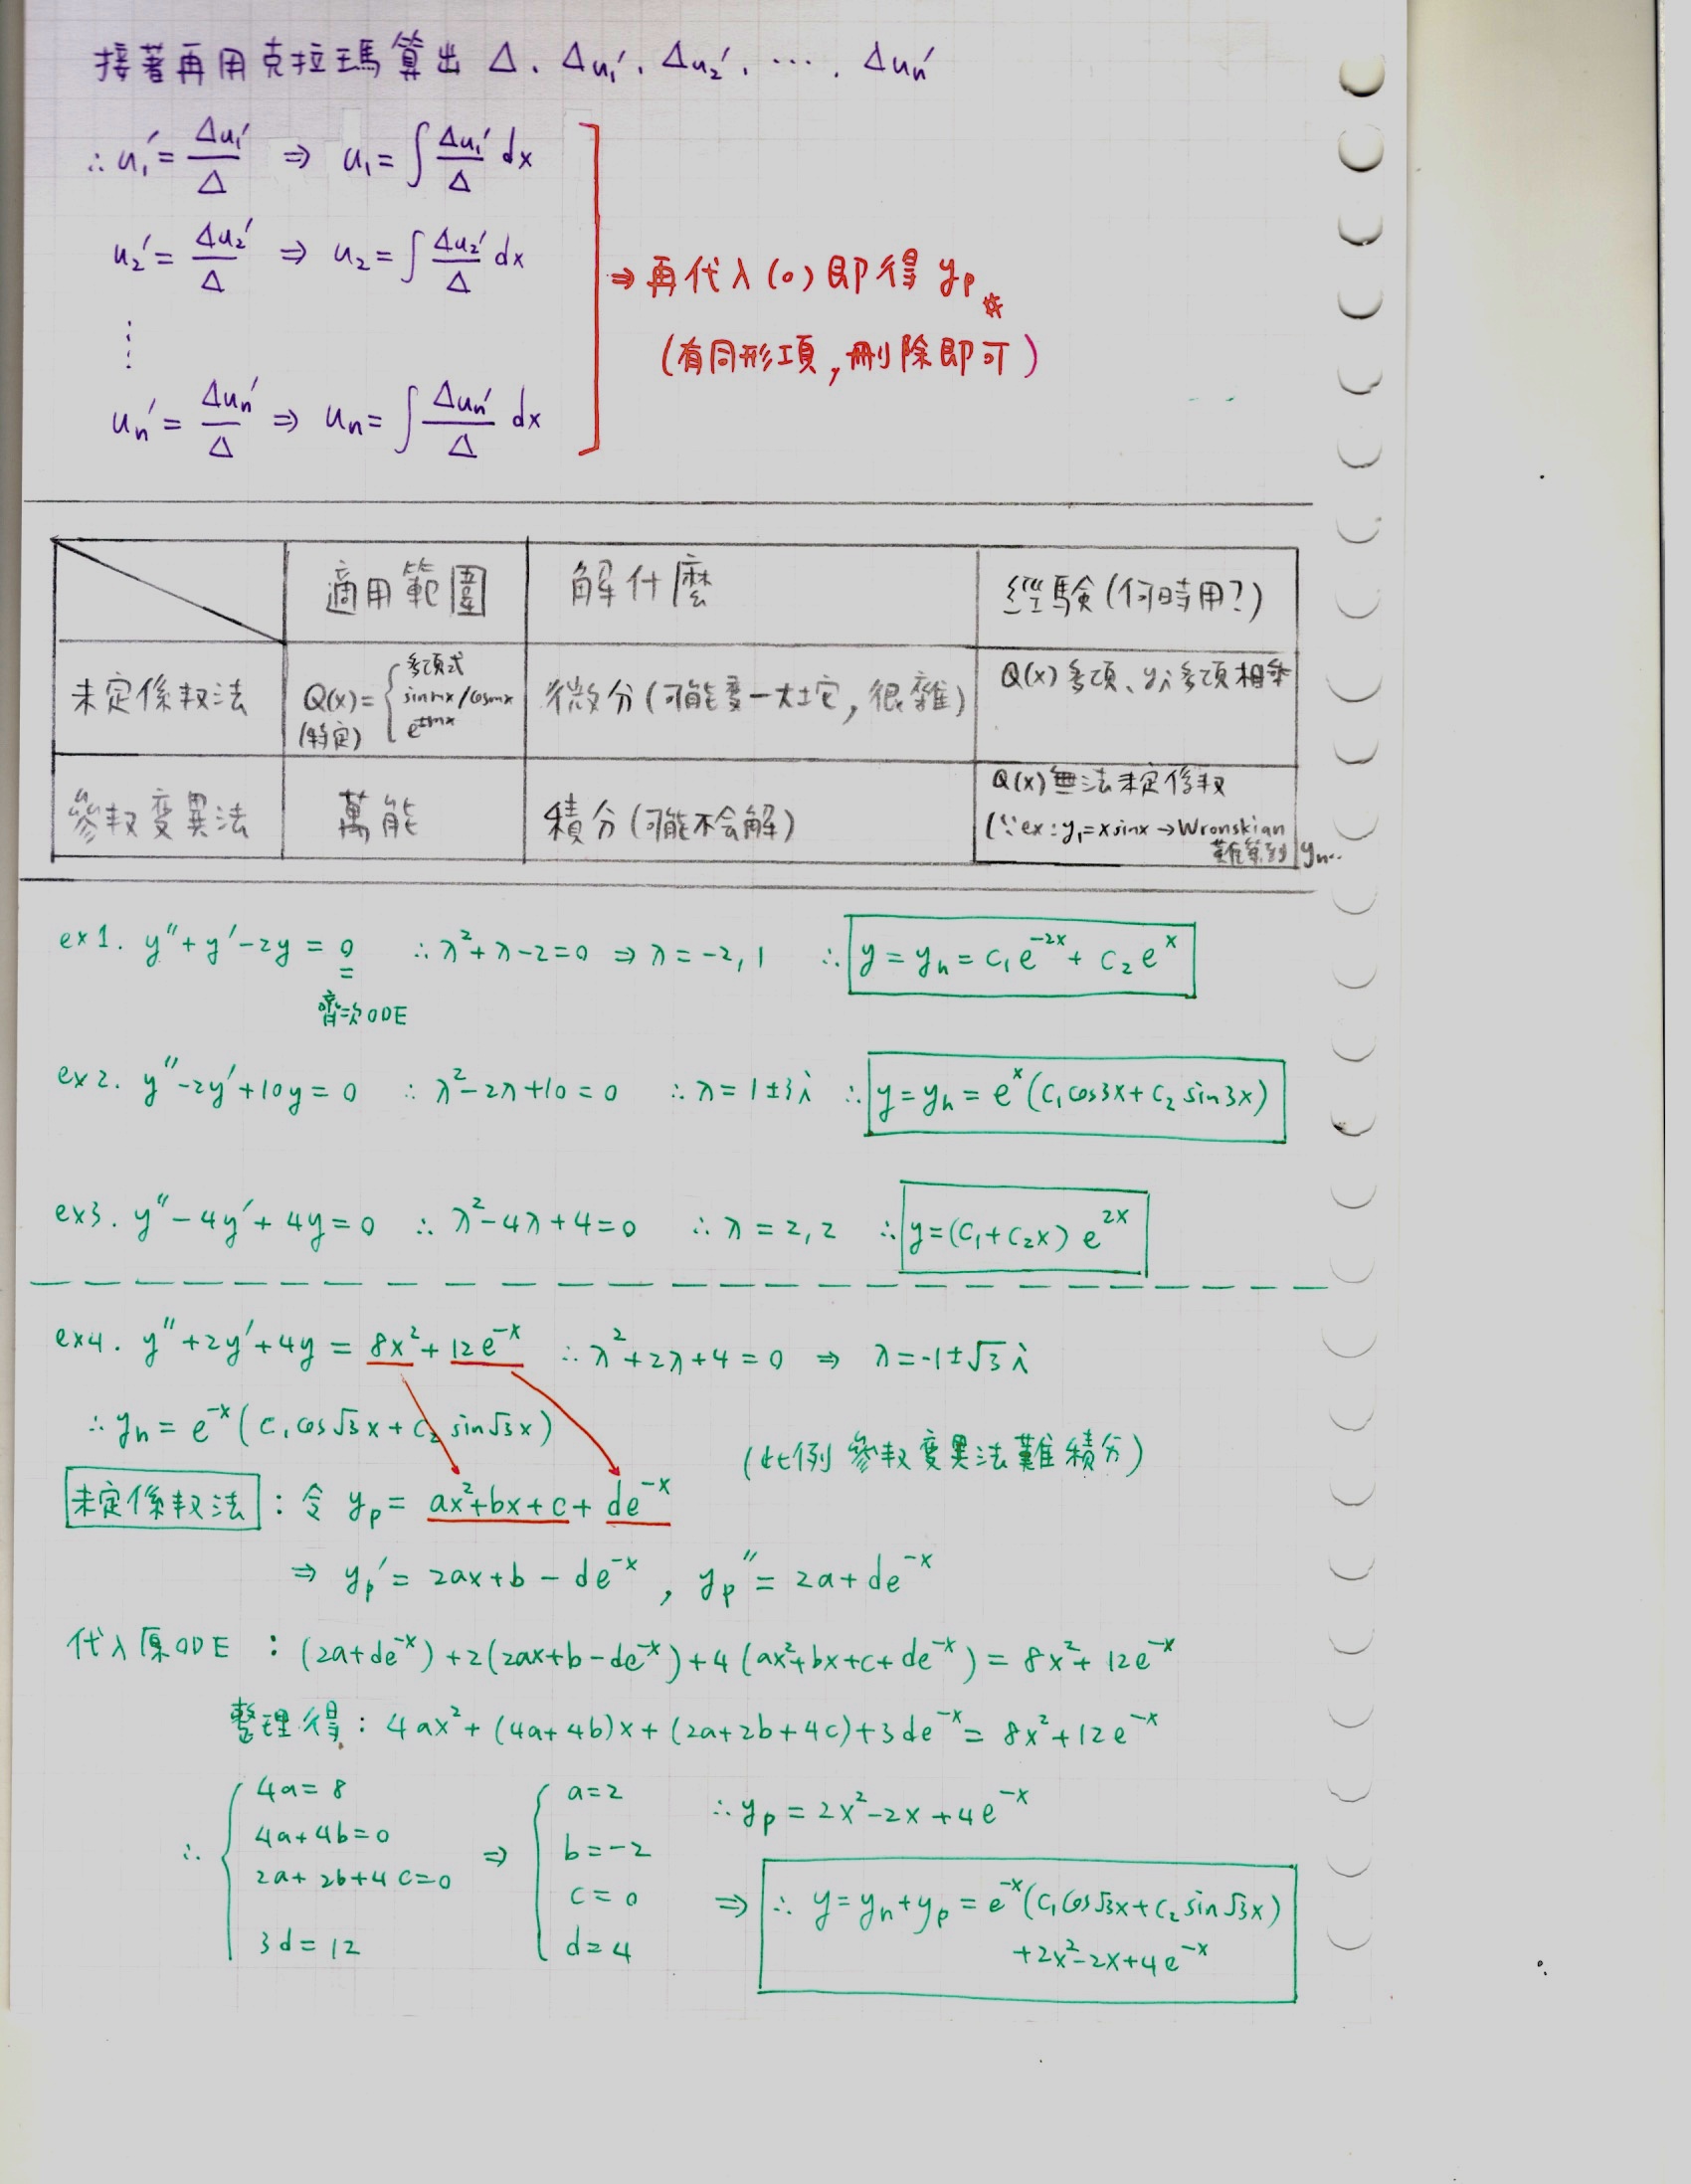 接著再用克拉瑪算出 Δ、Δu₁′、Δu₂′、…、Δuₙ′
∴ u₁′ = Δu₁′/Δ ⇒ u₁ = ∫ Δu₁′/Δ dx
u₂′ = Δu₂′/Δ ⇒ u₂ = ∫ Δu₂′/Δ dx
⇒ 再代入(0)即得 yₚ
(有同形項,刪除即可)
⋮
uₙ′ = Δuₙ′/Δ ⇒ uₙ = ∫ Δuₙ′/Δ dx
適用範圍 解什麼 經驗(何時用?)
未定係數法 Q(x) = { 多項式 sinmx/cosmx e^±mx
(特定)
微分(可能變一大坨,很雜)
Q(x)多項、yᵢ多項相乘
參數變異法 萬能 積分(可能不会解)
Q(x)無法未定係數
(∵ex: y₁=xsinx → Wronskian
難算到 yₙ..
ex1. y″+y′-2y = 0 ∴λ²+λ-2=0 ⇒ λ=-2, 1 ∴ y = yₕ = c₁e^-2x + c₂e^x
齊次ODE
ex2. y″-2y′+10y = 0 ∴ λ²-2λ+10 = 0 ∴λ = 1±3i ∴ y = yₕ = e^x(c₁cos3x + c₂sin3x)
ex3. y″-4y′+4y = 0 ∴ λ²-4λ+4=0 ∴λ = 2, 2 ∴ y=(c₁+c₂x) e^2x
ex4. y″+2y′+4y = 8x²+12e^-x ∴λ²+2λ+4 = 0 ⇒ λ=-1±√3 i
∴ yₕ = e^-x(c₁cos√3x + c₂ sin√3x)
(此例 參數變異法難積分)
未定係數法 : 令 yₚ = ax²+bx+c + de^-x
⇒ yₚ′ = 2ax+b-de^-x , yₚ″ = 2a+de^-x
代入原ODE : (2a+de^-x)+2(2ax+b-de^-x)+4(ax²+bx+c+de^-x) = 8x²+12e^-x
整理得: 4ax²+(4a+4b)x+(2a+2b+4c)+3de^-x = 8x²+12e^-x
∴ { 4a=8
4a+4b=0
2a+2b+4c=0
3d=12
⇒ { a=2
b=-2
c=0
d=4
∴ yₚ = 2x²-2x+4e^-x
⇒ ∴ y=yₕ+yₚ = e^-x(c₁cos√3x+c₂sin√3x)
+2x²-2x+4e^-x